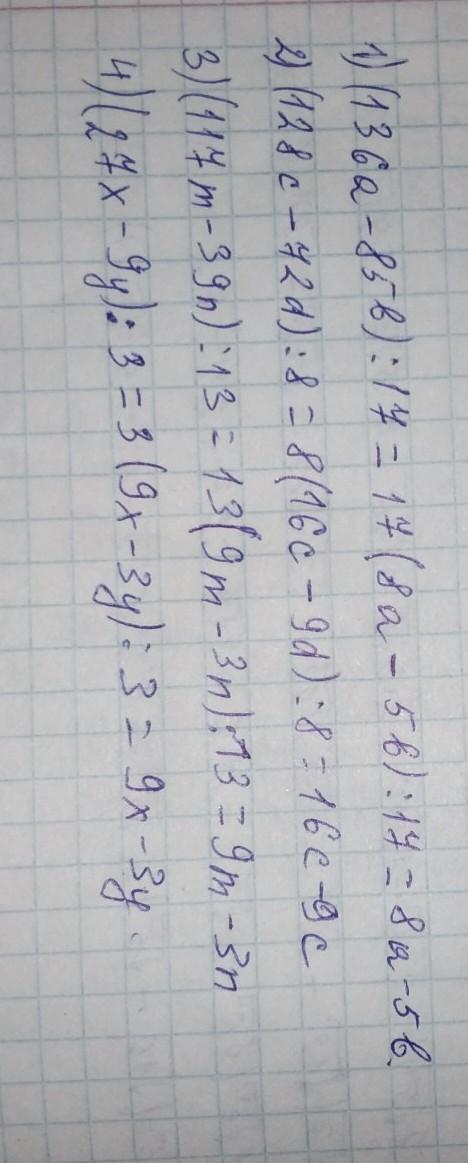 1) (136a - 85b) : 17 = 17 (8a - 5b) : 17 = 8a - 5b.
2) (128c - 72d) : 8 = 8 (16c - 9d) : 8 = 16c - 9c
3) (117m - 39n) : 13 = 13 (9m - 3n) : 13 = 9m - 3n
4) (27x - 9y) : 3 = 3 (9x - 3y) : 3 = 9x - 3y.